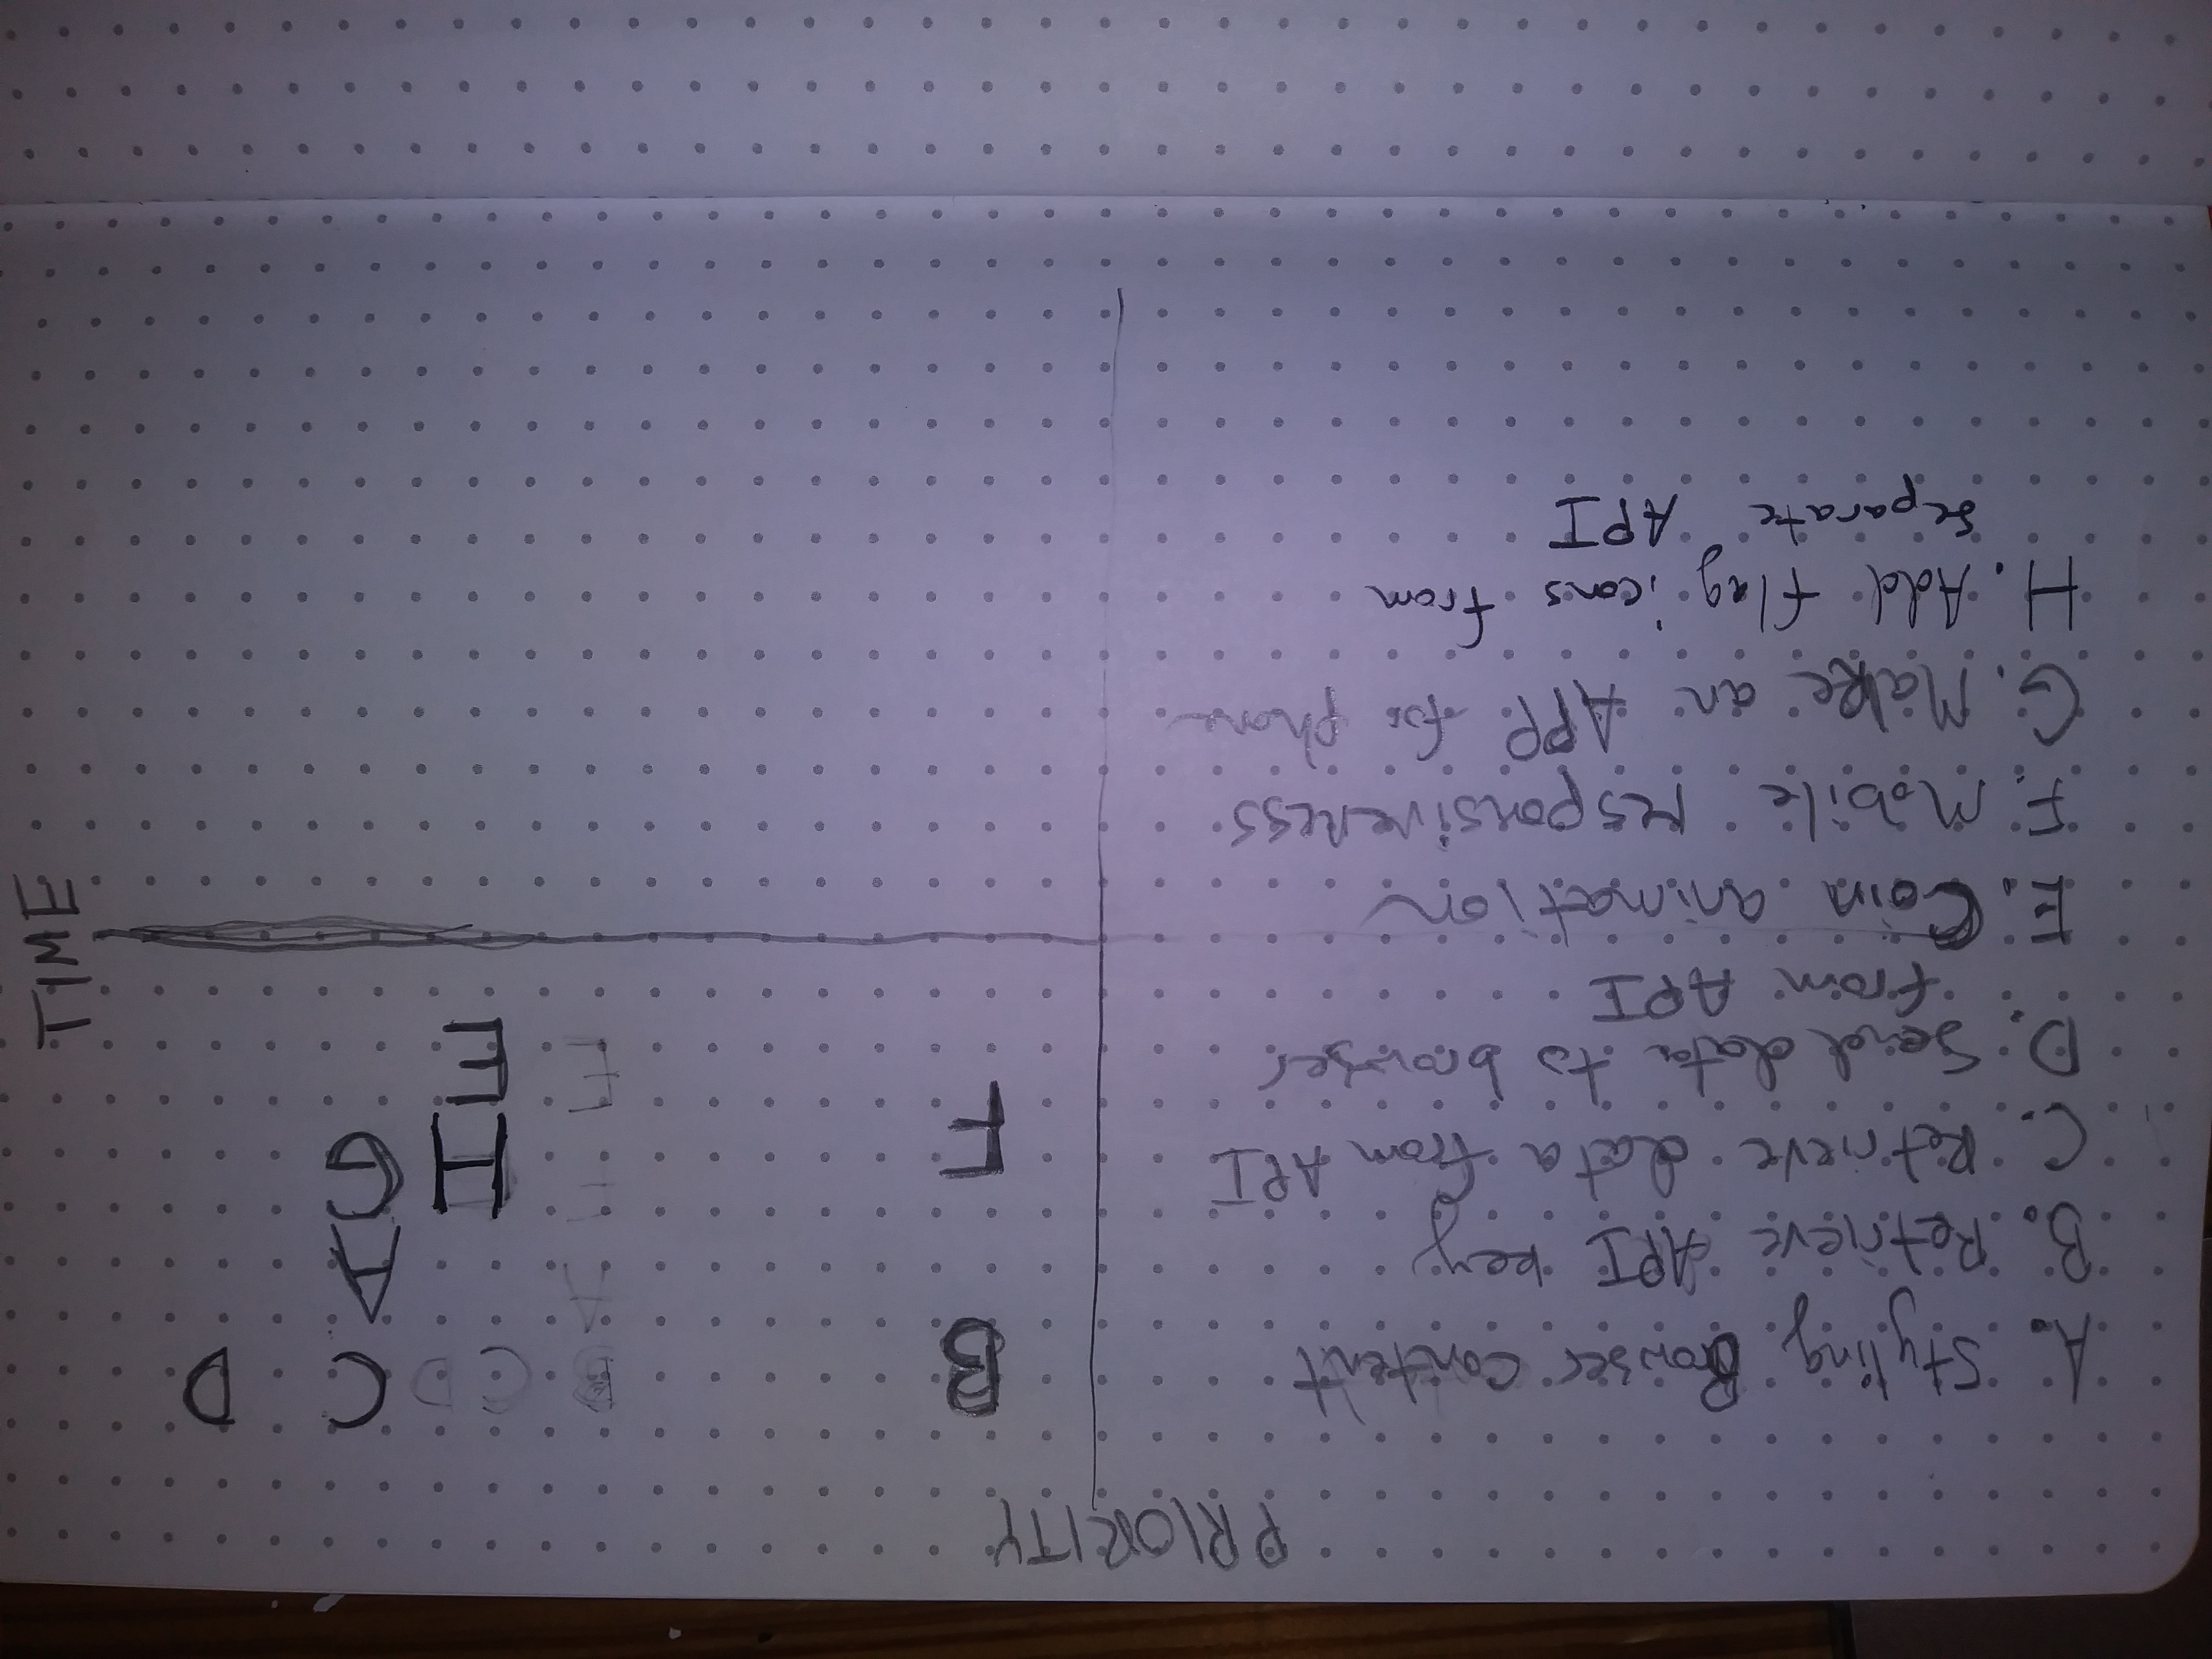 PRIORITY
A. Styling Browser content
B. Retrieve API key
C. Retrieve data from API
D. Send data to browser
from API
E. Coin animation
F. Mobile responsiveness
G. Make an APP for phone
H. Add flag icons from
separate API
B B C D C D
A A
F F H G
E E
TIME